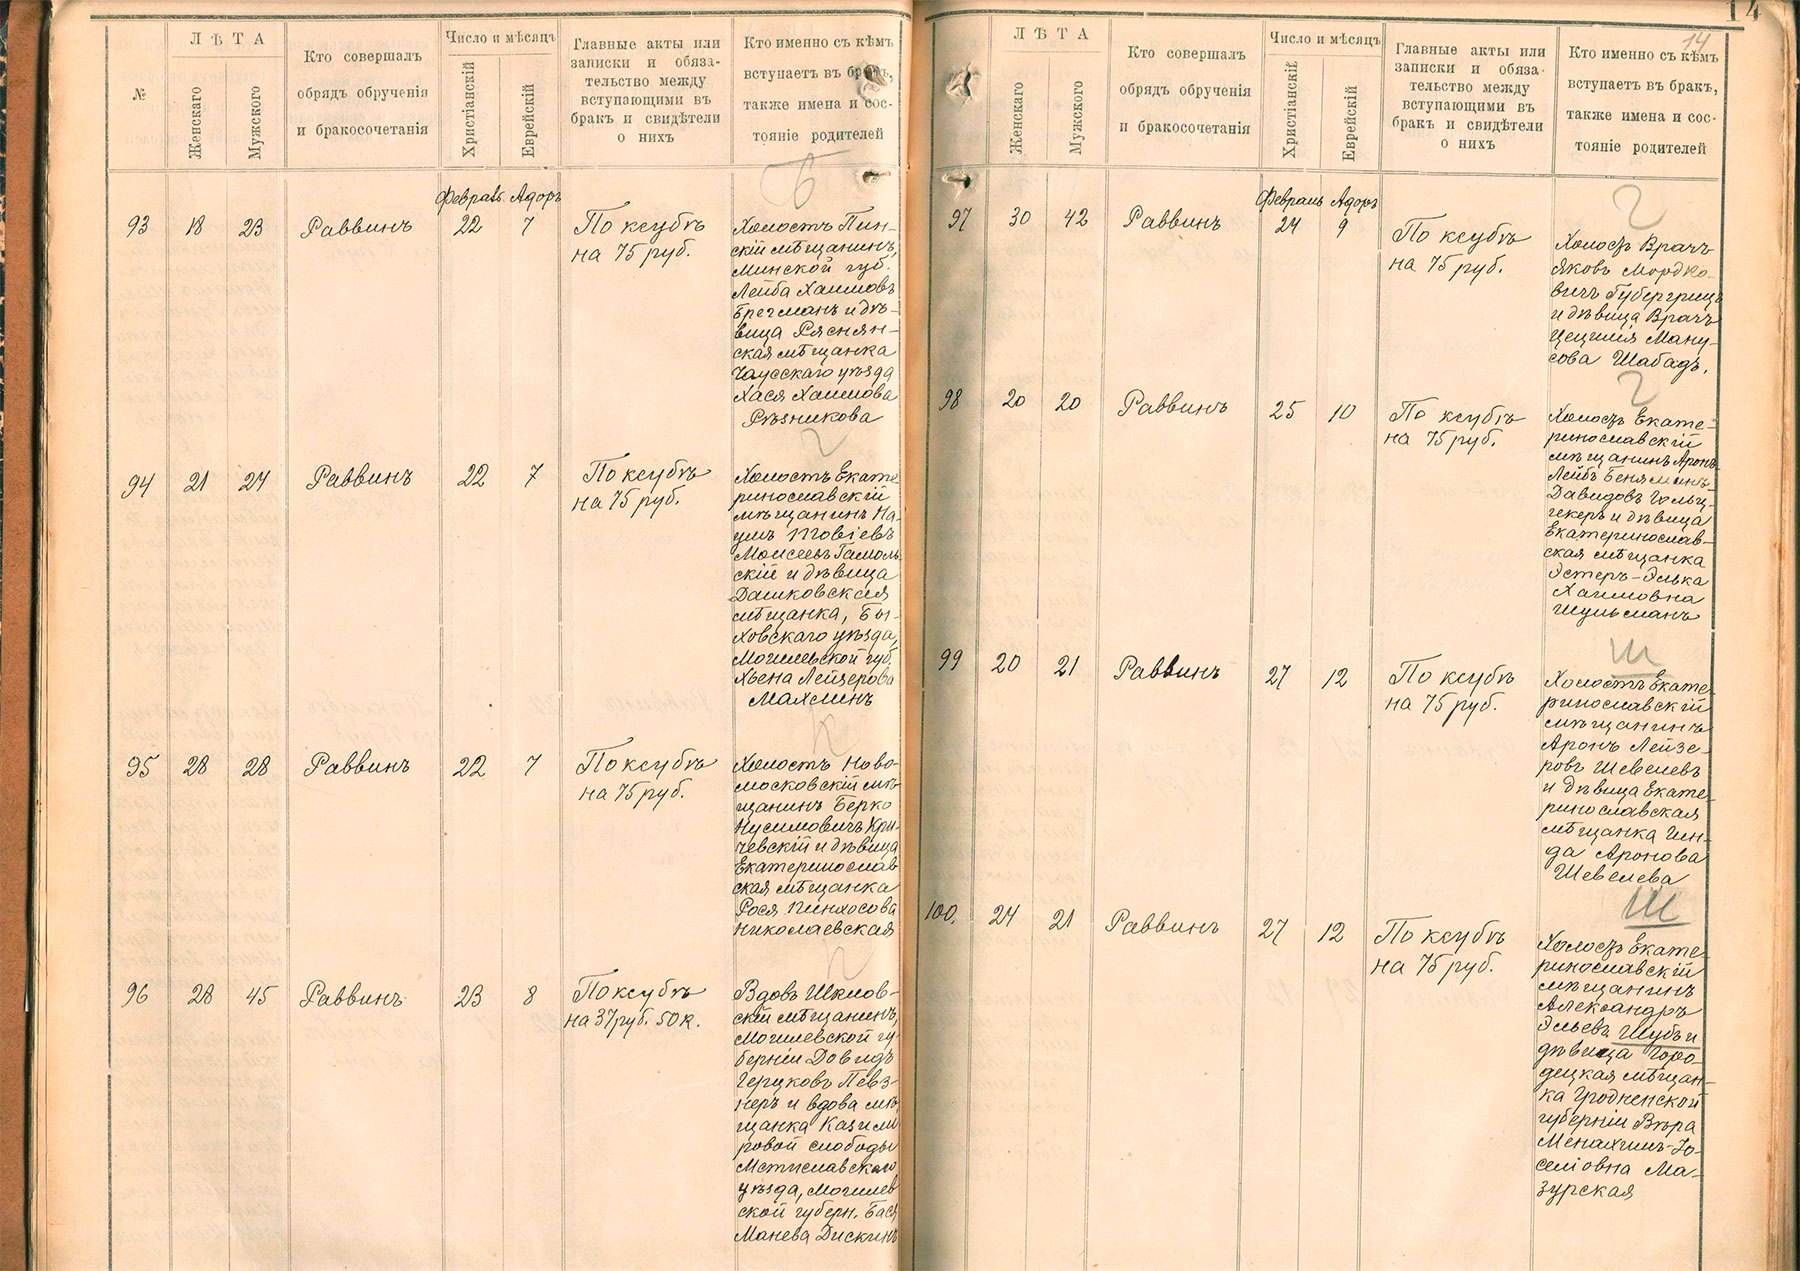 №
ЛѢТА
Женскаго
Мужского
Кто совершалъ
обрядъ обрученія
и бракосочетанія
Число и мѣсяцъ
Христіанскій
Еврейскій
Главные акты или
записки и обяза-
тельство между
вступающими въ
бракъ и свидѣтели
о нихъ
Кто именно съ кѣмъ
вступаетъ въ бракъ,
также имена и сос-
тояніе родителей
Февраль Адоръ
93 18 23 Раввинъ 22 7
По ксубѣ
на 75 руб.
Б
Холостъ Пин-
скій мѣщанинъ,
Минской губ.
Лейба Хаимовъ
Брегманъ и дѣ-
вица Ряснян-
ская мѣщанка
Чаусскаго уѣзда
Хася Хаимова
Рѣзникова
94 21 24 Раввинъ 22 7
По ксубѣ
на 75 руб.
Г
Холостъ Екате-
ринославскій
мѣщанинъ На-
умъ Товіевъ
Моисеевъ Гамоль
скій и дѣвица
Дашковская
мѣщанка, Бы-
ховскаго уѣзда,
Могилевской губ.
Хьена Лейзерова
Махлинъ
95 28 28 Раввинъ 22 7
По ксубѣ
на 75 руб.
К
Холостъ Ново-
московскій мѣ-
щанинъ Берко
Нусимовичъ Кри-
чевскій и дѣвица
Екатеринослав
ская мѣщанка
Рося Пинхосова
Николаевская
96 28 45 Раввинъ 23 8
По ксубѣ
на 37 руб. 50 к.
Вдовъ Шклов-
скій мѣщанинъ,
Могилевской гу-
берніи Довидъ
Герцковъ Певз-
неръ и вдова мѣ-
щанка Казими
ровой слободы
Мстиславскаго
уѣзда, Могилев
ской губерн. Бася
Манева Дискинъ
14
14
ЛѢТА
Женскаго
Мужского
Кто совершалъ
обрядъ обрученія
и бракосочетанія
Число и мѣсяцъ
Христіанскій
Еврейскій
Главные акты или
записки и обяза-
тельство между
вступающими въ
бракъ и свидѣтели
о нихъ
Кто именно съ кѣмъ
вступаетъ въ бракъ,
также имена и сос-
тояніе родителей
Февраль Адоръ
97 30 42 Раввинъ 24 9
По ксубѣ
на 75 руб.
Г
Холостъ Врачъ
Яковъ Мордко-
вичъ Губергрицъ
и дѣвица Врачъ
Цецилія Ману-
сова Шабадъ.
98 20 20 Раввинъ 25 10
По ксубѣ
на 75 руб.
Г
Холостъ Екате-
ринославскій
мѣщанинъ Аронъ
Лейбъ Беняминъ
Давидовъ Гольц-
гекеръ и дѣвица
Екатеринослав-
ская мѣщанка
Эстеръ-Элька
Хаимовна
Шульманъ
99 20 21 Раввинъ 27 12
По ксубѣ
на 75 руб.
Ш
Холостъ Екате-
ринославскій
мѣщанинъ
Аронъ Лейзе-
ровъ Шевелевъ
и дѣвица Екате-
ринославская
мѣщанка Гин-
да Аронова
Шевелева
100. 24 21 Раввинъ 27 12
По ксубѣ
на 75 руб.
Ш
Холостъ Екате-
ринославскій
мѣщанинъ
Александръ
Эльевъ Шубъ и
дѣвица Горо-
децкая мѣщан-
ка Гродненской
губерніи Вѣра
Менахимъ-Іо-
селіовна Ма-
зурская